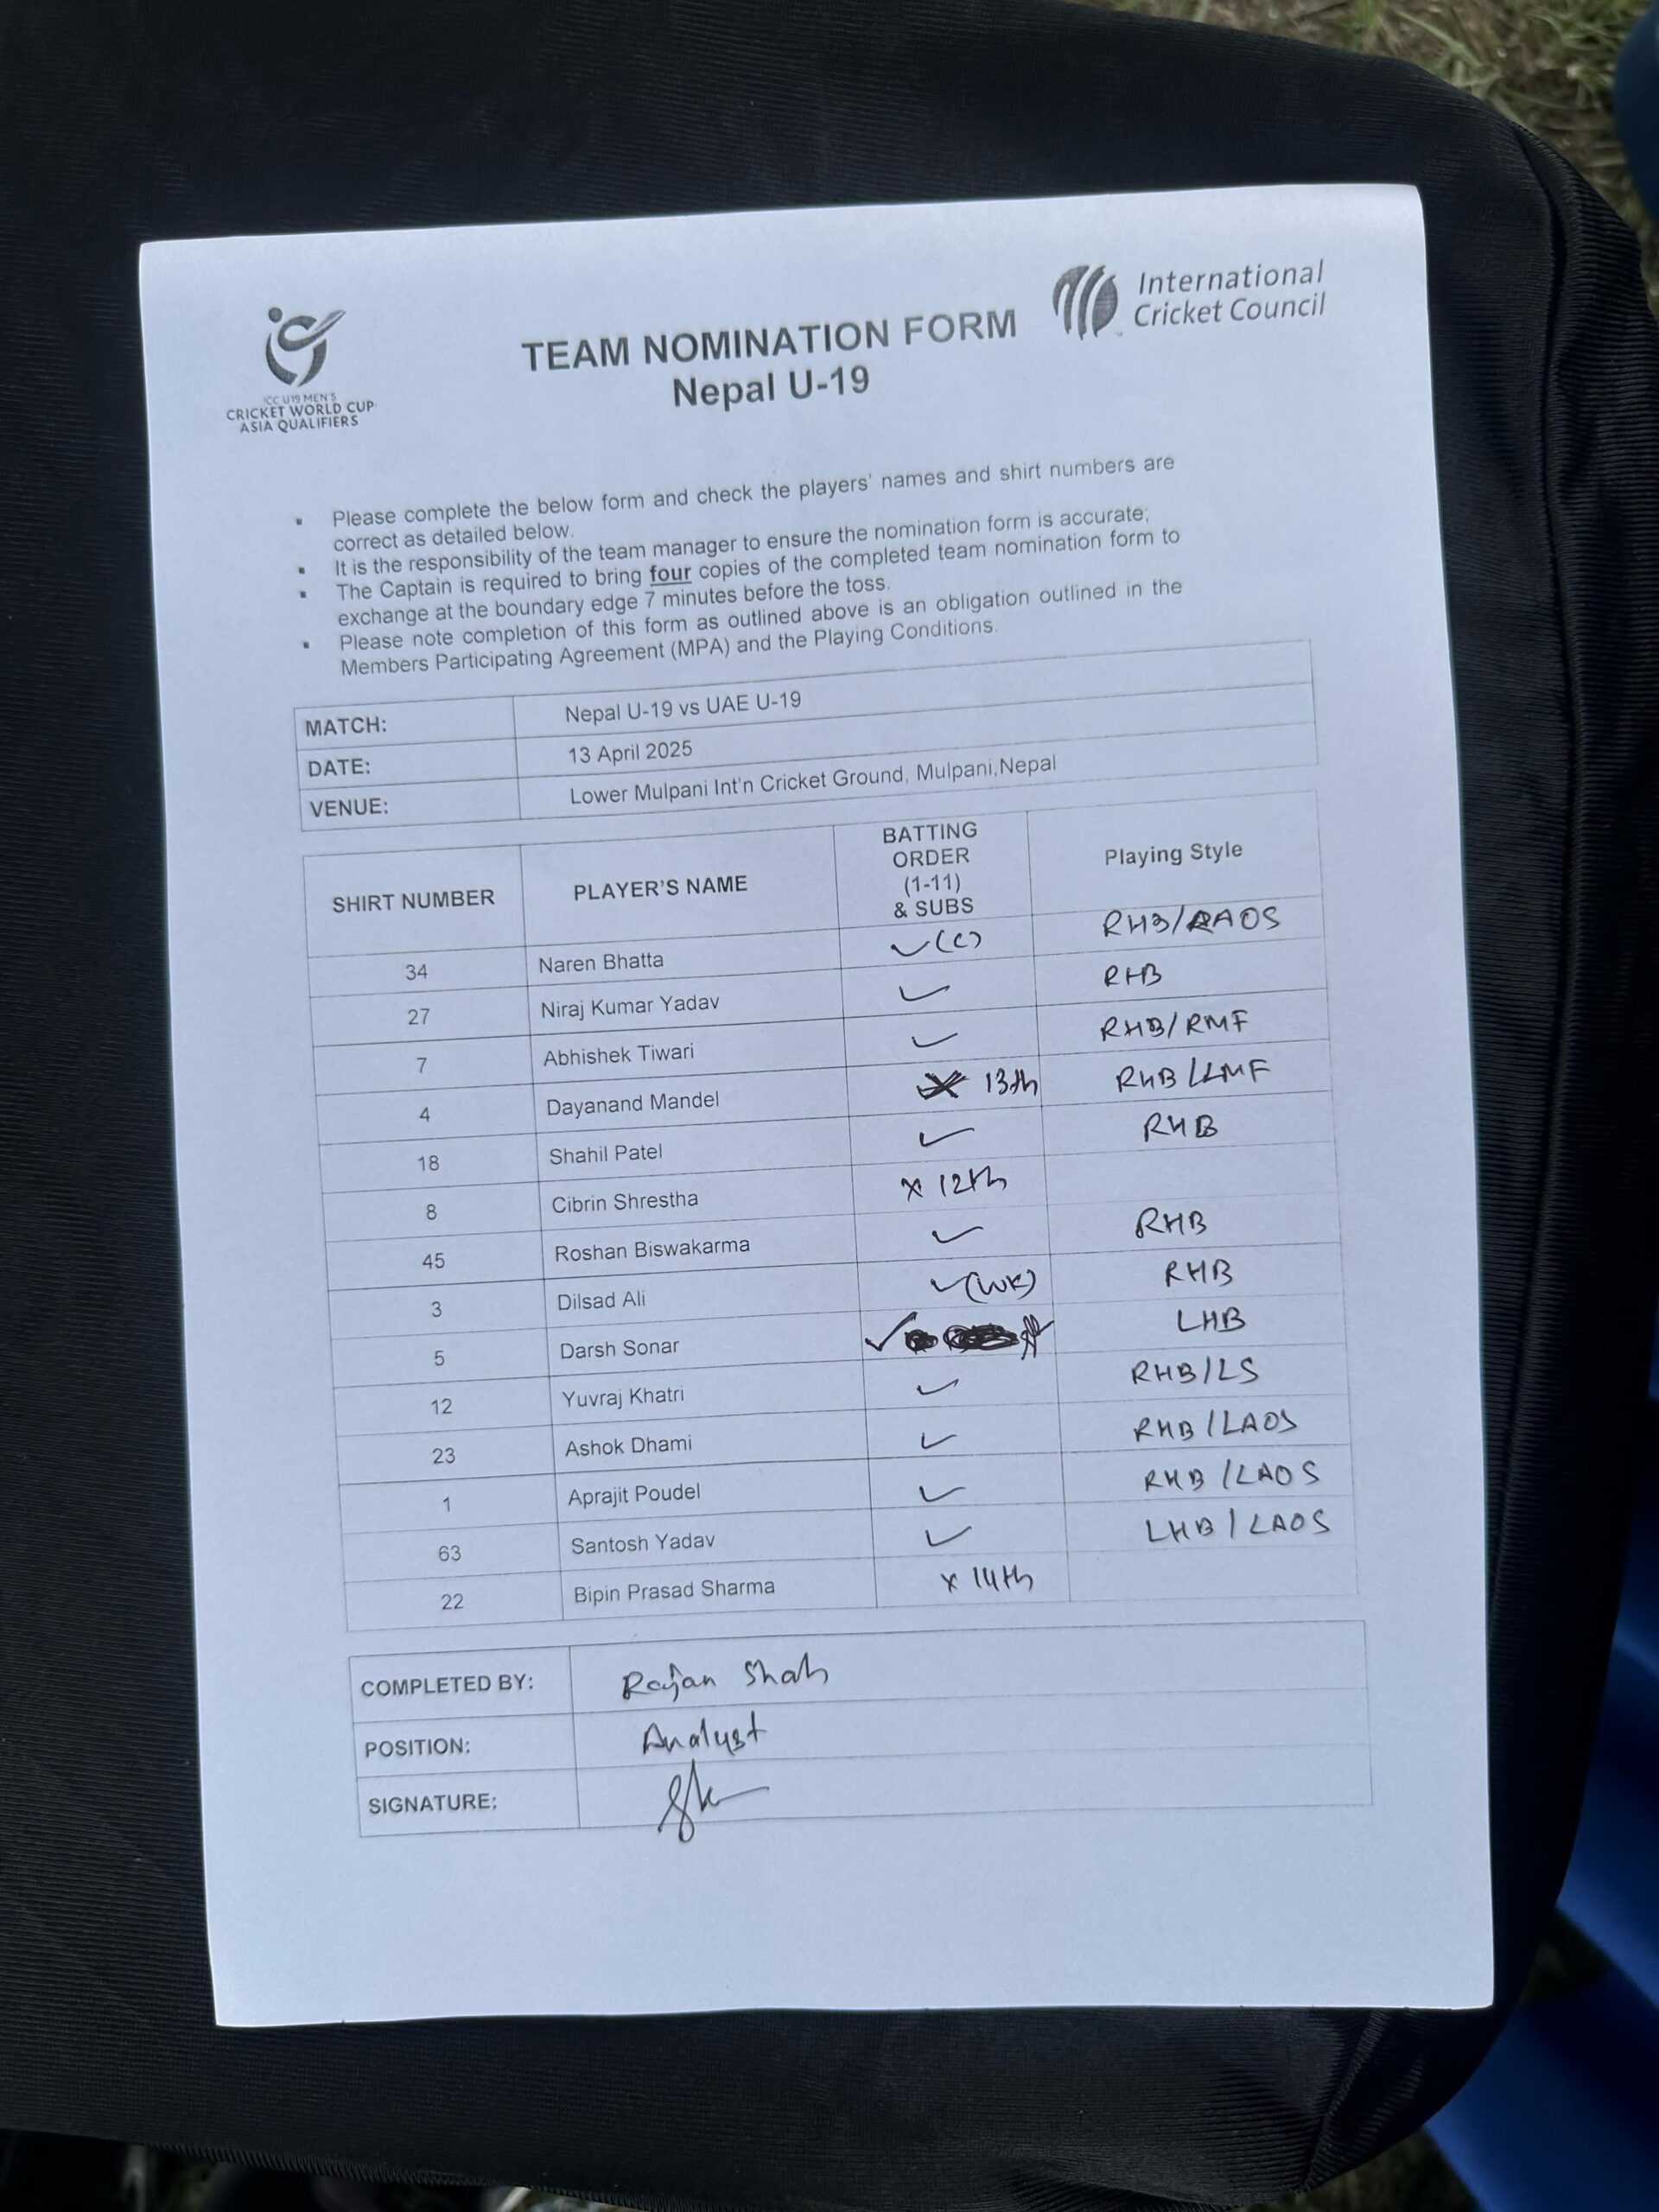 ICC U19 MEN'S
CRICKET WORLD CUP
ASIA QUALIFIERS
TEAM NOMINATION FORM
Nepal U-19
International
Cricket Council
▪ Please complete the below form and check the players' names and shirt numbers are
correct as detailed below.
▪ It is the responsibility of the team manager to ensure the nomination form is accurate;
▪ The Captain is required to bring four copies of the completed team nomination form to
exchange at the boundary edge 7 minutes before the toss.
▪ Please note completion of this form as outlined above is an obligation outlined in the
Members Participating Agreement (MPA) and the Playing Conditions.
MATCH: Nepal U-19 vs UAE U-19
DATE: 13 April 2025
VENUE: Lower Mulpani Int'n Cricket Ground, Mulpani,Nepal
SHIRT NUMBER PLAYER'S NAME BATTING ORDER (1-11) & SUBS Playing Style
34 Naren Bhatta ✓(C) RHB/RAOS
27 Niraj Kumar Yadav ✓ RHB
7 Abhishek Tiwari ✓ RHB/RMF
4 Dayanand Mandel x 13th RHB/LMF
18 Shahil Patel ✓ RHB
8 Cibrin Shrestha x 12th
45 Roshan Biswakarma ✓ RHB
3 Dilsad Ali ✓(WK) RHB
5 Darsh Sonar ✓ LHB
12 Yuvraj Khatri ✓ RHB/LS
23 Ashok Dhami ✓ RHB/LAOS
1 Aprajit Poudel ✓ RHB/LAOS
63 Santosh Yadav ✓ LHB/LAOS
22 Bipin Prasad Sharma x 14th
COMPLETED BY: Rajan Shah
POSITION: Analyst
SIGNATURE: